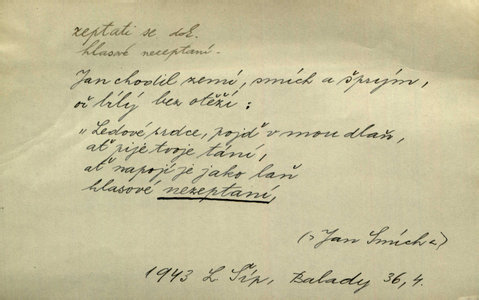 zeptati se dok.
hlasové nezeptaní.
Jan chodil zemí, smích a šprým,
oč bílý bez otěží:
„Ledové srdce, pojď v mou dlaň,
ať pije tvoje tání,
ať napojí je jako laň
hlasové nezeptaní,
(„Jan Smích“)
1943 L. Síp, Balady 36, 4.